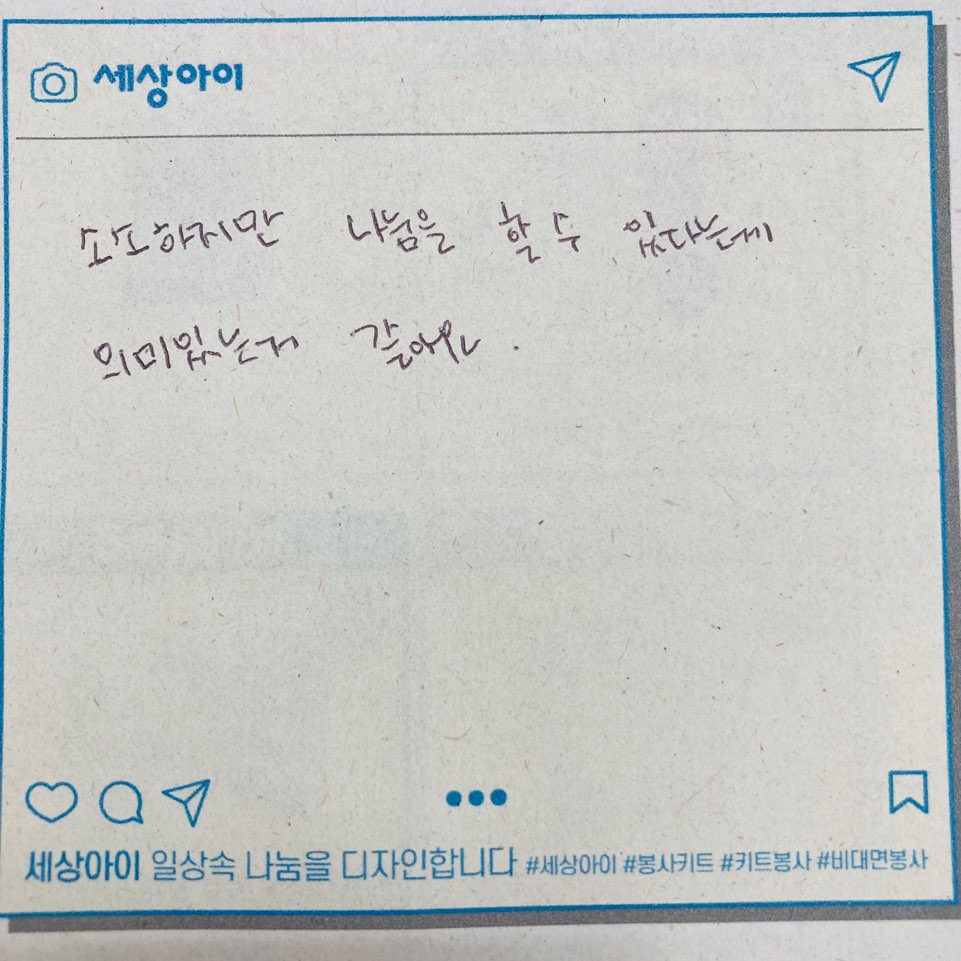 세상아이
소소하지만 나눔을 할 수 있다는게
의미있는거 같아요.
세상아이 일상속 나눔을 디자인합니다 #세상아이 #봉사키트 #키트봉사 #비대면봉사